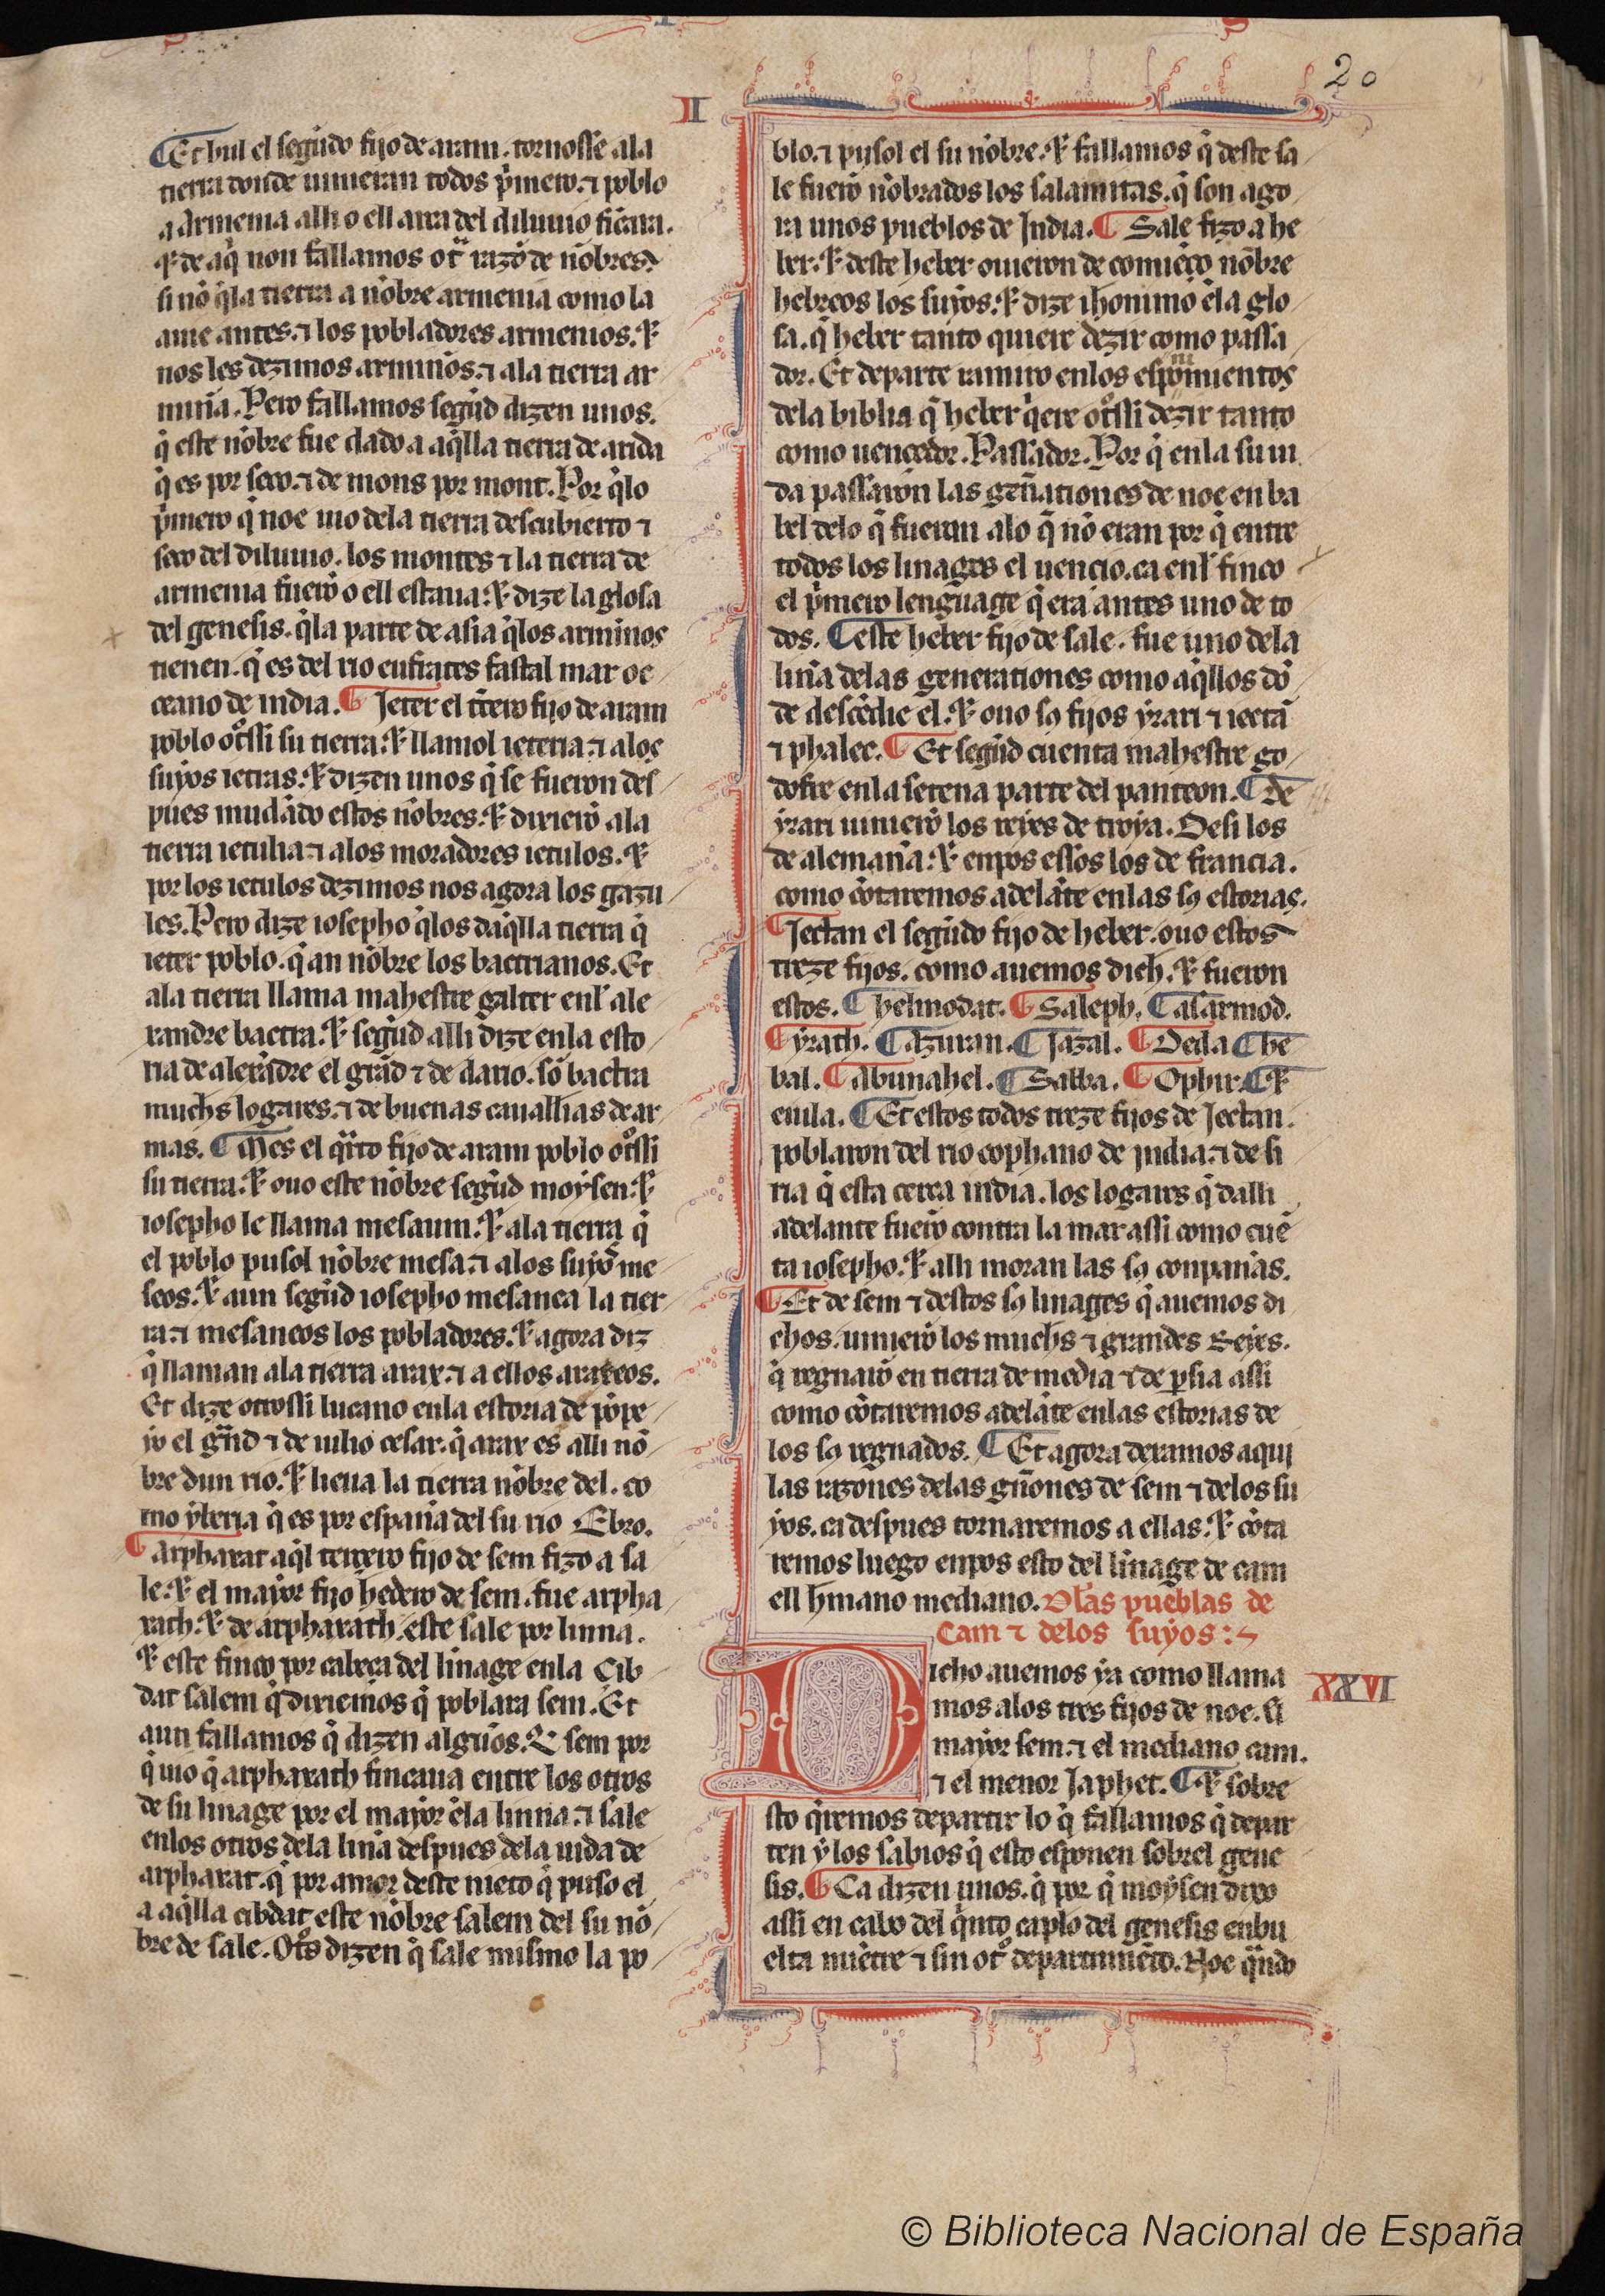 II
20
¶ Et hul el segũdo fijo de aram. tornosse ala
tierra donde uinieran todos p̃mero. ⁊ poblo
a Armenia alli o ell arca del diluuio fincara.
⁊ de aq̃ non fallamos ot̃ razõ de nõbres.
si nõ q̃la tierra a nõbre armenia como la
auie antes. ⁊ los pobladores armenios. ⁊
nos les dezimos arminios. ⁊ ala tierra ar
minia. Pero fallamos segũd dizen unos.
q̃ este nõbre fue dado a aq̃lla tierra de arida
q̃ es por seco. ⁊ de mons por mont. Por q̃lo
p̃mero q̃ noe uio dela tierra descubierto ⁊
seco del diluuio. los montes ⁊ la tierra de
armenia fuerõ o ell estaua. ⁊ dize la glosa
del genesis. q̃la parte de asia q̃los arminos
tienen. q̃ es del rio eufrates fastal mar oc
ceano de india. ¶ Jeter el t̃cero fijo de aram
poblo ot̃ssi su tierra. ⁊ llamol ieteria. ⁊ alos
suyos ietras. ⁊ dizen unos q̃ se fueron des
pues mudãdo estos nõbres. ⁊ dixierõ ala
tierra ietulia. ⁊ alos moradores ietulos. ⁊
por los ietulos dezimos nos agora los gazu
les. Pero dize iosepho q̃los daq̃lla tierra q̃
ieter poblo. q̃ an nõbre los bactrianos. Et
ala tierra llama mahestre galter enl ale
xandre bactra. ⁊ segũd alli dize enla esto
ria de alexãdre el grãd ⁊ de dario. sõ bactra
muchs logares. ⁊ de buenas cauallias de ar
mas. ¶ Mes el q̃rto fijo de aram poblo ot̃ssi
su tierra. ⁊ ouo este nõbre segũd moysen. ⁊
iosepho le llama mesaum. ⁊ ala tierra q̃
el poblo pusol nõbre mesa. ⁊ alos suyõs me
seos. ⁊ aun segũd iosepho mesanea la tier
ra. ⁊ mesaneos los pobladores. ⁊ agora diz
q̃ llaman ala tierra arax. ⁊ a ellos araxeos.
Et dize otrossi lucano enla estoria de põpe
yo el g̃nd ⁊ de iulio cesar. q̃ arax es alli nõ
bre dun rio. ⁊ lieua la tierra nõbre del. co
mo yberia q̃ es por españa del su rio Ebro.
¶ Arphaxat aq̃l tercero fijo de sem fizo a sa
le. ⁊ el mayor fijo hedero de sem. fue arpha
xath. ⁊ de arphaxath. este sale por linna.
⁊ este finco por cabeça del linage enla Cib
dat salem q̃ dixiemos q̃ poblara sem. Et
aun fallamos q̃ dizen algũos. Q̃ sem por
q̃ uio q̃ arphaxath fincaua entre los otros
de su linage por el mayor ẽla linna. ⁊ sale
enlos otros dela liña despues dela uida de
arphaxat. q̃ por amor deste nieto q̃ puso el
a aq̃lla cibdat este nõbre salem del su nõ
bre de sale. Ot̃s dizen q̃ sale mismo la po
blo. ⁊ pusol el su nõbre. ⁊ fallamos q̃ deste sa
le fuerõ nõbrados los salamitas. q̃ son ago
ra unos pueblos de India. ¶ Sale fizo a he
ber. ⁊ deste heber ouieron de comiẽço nõbre
hebreos los suyos. ⁊ dize ihonimo ẽla glo
sa. q̃ heber tanto quiere dezir como passa
dor. Et departe ramiro enlos esponimientos
dela biblia q̃ heber q̃ere ot̃ssi dezir tanto
como uencedor. Passador. Por q̃ enla su ui
da passaron las gen̄ationes de noe en ba
bel delo q̃ fueran alo q̃ nõ eran por q̃ entre
todos los linages el uencio. ca enl finco
el p̃mero lenguage q̃ era antes uno de to
dos. ¶ este heber fijo de sale. fue uno dela
liña delas generationes como aq̃llos dõ
de descẽdie el. ⁊ ouo sꝯ fijos yrari ⁊ iectã
⁊ phalec. ¶ Et segũd cuenta mahestre go
dofre enla setena parte del panteon. ¶ De
yrari uinierõ los reyes de troya. Desi los
de alemaña. ⁊ empos essos los de francia.
como cõtaremos adelãte enlas sꝯ estorias.
¶ Jectan el segũdo fijo de heber. ouo estos
treze fijos. como auemos dich. ⁊ fueron
estos. ¶ helmodat. ¶ Saleph. ¶ Asarmod.
¶ yrath. ¶ Azuran. ¶ Jazal. ¶ Decla ¶ he
bal. ¶ Abimahel. ¶ Sabba. ¶ Ophir. ¶ ⁊
euila. ¶ Et estos todos treze fijos de Jectan.
poblaron del rio cophano de india. ⁊ de si
ria q̃ esta cerca india. los logares q̃ dalli
adelante fuerõ contra la mar assi como cuẽ
ta iosepho. ⁊ alli moran las sꝯ conpañas.
¶ Et de sem ⁊ destos sꝯ linages q̃ auemos di
chos. uinierõ los muchs ⁊ grandes Reyes.
q̃ regnarõ en tierra de media ⁊ de p̱sia assi
como cõtaremos adelãte enlas estorias de
los sꝯ regnados. ¶ Et agora dexamos aqui
las razones delas gñones de sem ⁊ delos su
yos. ca despues tornaremos a ellas. ⁊ cõta
remos luego empos esto del linage de cam
ell h̃mano mediano. Dlas pueblas de
Cam ⁊ delos suyos:
Dicho auemos ya como llama
XXVI
mos alos tres fijos de noe. El
mayor sem. ⁊ el mediano cam.
⁊ el menor Japhet. ¶ ⁊ sobre
sto q̃remos departir lo q̃ fallamos q̃ depar
ten y los sabios q̃ esto esponen sobrel gene
sis. ¶ Ca dizen unos. q̃ por q̃ moysen dixo
assi en cabo del q̃nto caplo del genesis enbu
elta miẽtre ⁊ sin ot̃ departimiẽto. Noe q̃ndo
© Biblioteca Nacional de España